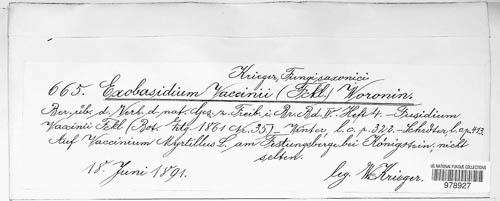 Krieger, Fungi saxonici
665. Exobasidium Vaccinii (Fckl.) Woronin.
Ber. üb. d. Verh. d. nat. Ges. z. Freib. i. Br. Bd. IV. Heft 4. – Fusidium
Vaccinii Fckl (Bot. Ztg. 1861 Nr. 35) – Winter, l. c. p. 322. – Schröter, l. c. p. 413.
Auf Vaccinium Myrtillus L. am Festungsberge bei Königstein, nicht
selten.
18. Juni 1891.
leg. W. Krieger.
US NATIONAL FUNGUS COLLECTIONS
978927